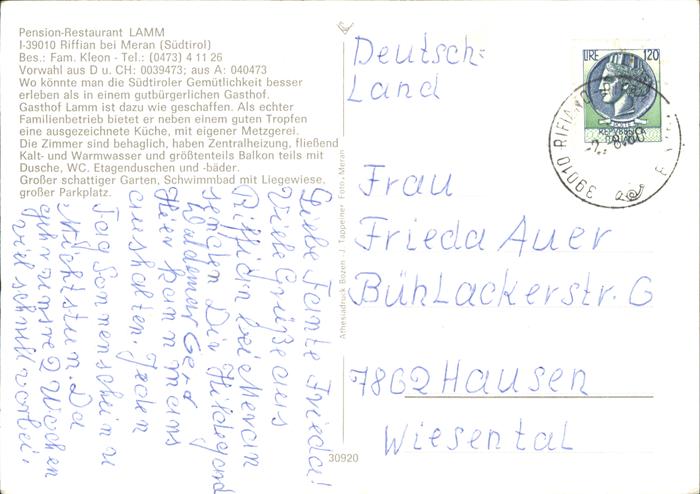 Pension-Restaurant LAMM
I-39010 Riffian bei Meran (Südtirol)
Bes.: Fam. Kleon - Tel.: (0473) 4 11 26
Vorwahl aus D u. CH: 0039473; aus A: 040473
Wo könnte man die Südtiroler Gemütlichkeit besser
erleben als in einem gutbürgerlichen Gasthof.
Gasthof Lamm ist dazu wie geschaffen. Als echter
Familienbetrieb bietet er neben einem guten Tropfen
eine ausgezeichnete Küche, mit eigener Metzgerei.
Die Zimmer sind behaglich, haben Zentralheizung, fließend
Kalt- und Warmwasser und größtenteils Balkon teils mit
Dusche, WC. Etagenduschen und -bäder.
Großer schattiger Garten, Schwimmbad mit Liegewiese,
großer Parkplatz.
Liebe Tante Frieda!
Viele Grüße aus
Riffian bei Meran
senden Dir Hildegund
Waldemar Gerd
Hier kann mans
aushalten. Jeden
Tag Sonnenschein u
Nichtstun. Da
gehn unsre 2 Wochen
viel schnell vorbei.
Athesiadruck Bozen J. Tappeiner Foto, Meran
30920
Deutsch-
Land
LIRE 120
REPVBBLICA
ITALIANA
39010 RIFIANO
Frau
Frieda Auer
Bühlackerstr. 6
7862 Hausen
Wiesental